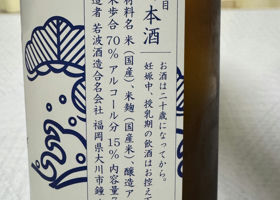 目
本酒
材料名 米(国産)、米麹(国産米)、醸造ア
米歩合 70% アルコール分 15% 内容量
造者 若波酒造合名会社 福岡県大川市鐘
お酒は二十歳になってから。
妊娠中、授乳期の飲酒はお控え下